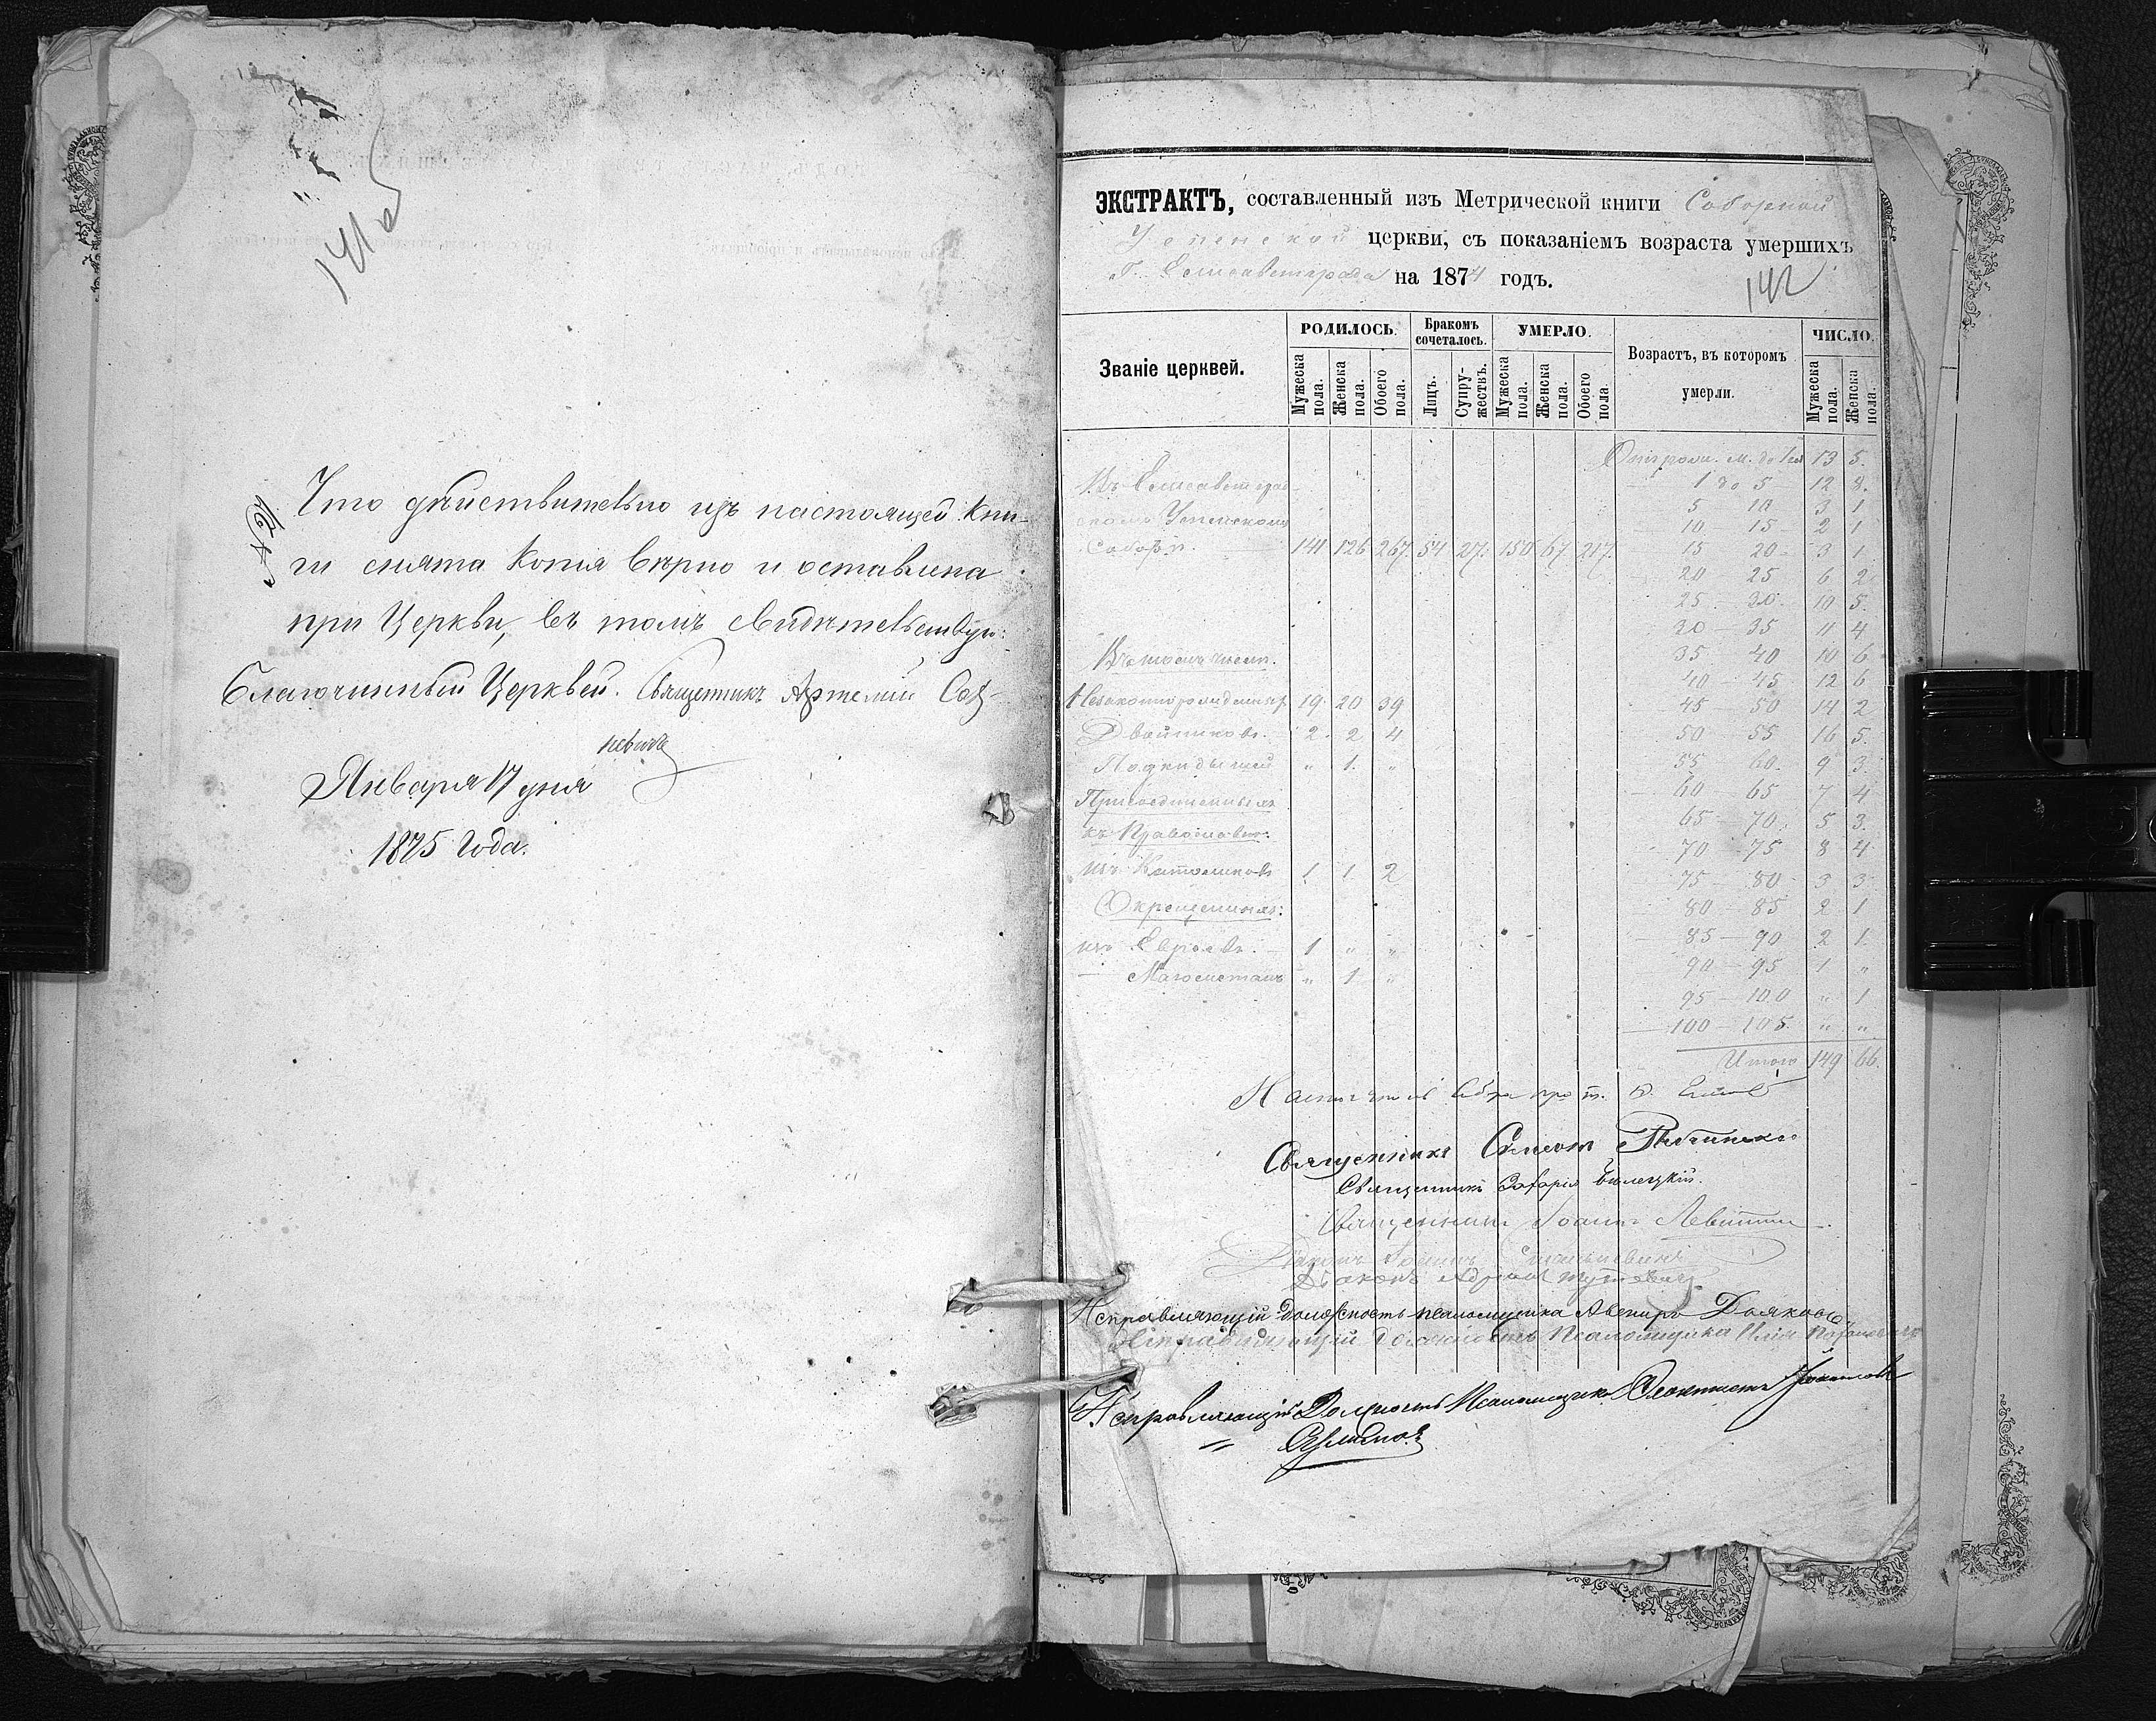 141 об
Что дѣйствительно изъ настоящей кни-
ги снята копія вѣрно и оставлена
при Церкви, въ томъ свидѣтельствую:
Благочинный Церквей. Священникъ Артемій
Января 17 дня
1875 Года.
ЭКСТРАКТЪ, составленный изъ Метрической книги Соборной
Успенской церкви, съ показаніемъ возраста умершихъ
г. Елисаветграда на 1874 годъ.
142
Званіе церквей. РОДИЛОСЬ. Бракомъ сочеталось. УМЕРЛО. Возрастъ, въ которомъ умерли. ЧИСЛО.
Мужеска пола. Женска пола. Обоего пола. Лицъ. Супру-жествъ. Мужеска пола. Женска пола. Обоего пола Мужеска пола. Женска пола.
13 5.
Въ Елисаветград-
1 до 5 12 8.
5 10 3 1
скомъ Успенскомъ
10 15 2 1
Соборѣ. 141 126 267. 54 27. 150 67. 217.
15 20 3 1
20 25 6 2
25 30 10 5.
30 35 11 4
Въ томъ числѣ.
35 40 10 6
40 45 12 6
Незаконнорожденныхъ 19 20 39
45 50 14 2
Двойниковъ. 2. 2 4
50 55 16 5.
Подкидышей " 1. "
55 60. 9 3.
Присоединенныхъ
60 65 7 4
къ Православію:
65 70. 5 3.
70 75 8 4
изъ Католиковъ 1 1 2
75 80 3 3
Окрещенныхъ:
80 85 2 1
изъ Евреевъ. 1 " "
85 90 2 1.
— Магометанъ " 1 "
90 95 1 "
95 100 " 1
100 105. " "
Итого 149 66.
Священникъ Симеонъ
Священникъ Захарія Бѣлецкій.
Священникъ Іоаннъ Левитскій
Діаконъ Іоаннъ
Діаконъ Адріанъ
Исправляющій Должность псаломщика Авениръ Дьяковъ
Исправляющій должность Псаломщика Илія
Исправляющій Должность Псаломщика Ѳеоктистъ